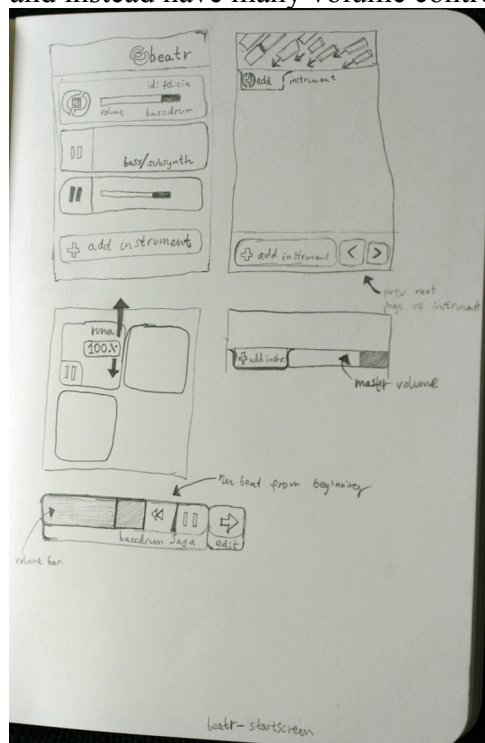 and instead have many volume contro
beatr
id: felicia
volume bassdrum
bass/subsynth
add instrument
add instrument
add instrument
prev next
page of instrument
runa
100%
add instr.
master volume
run beat from beginning
bassdrum Saga
edit
volume bar
beatr - startscreen